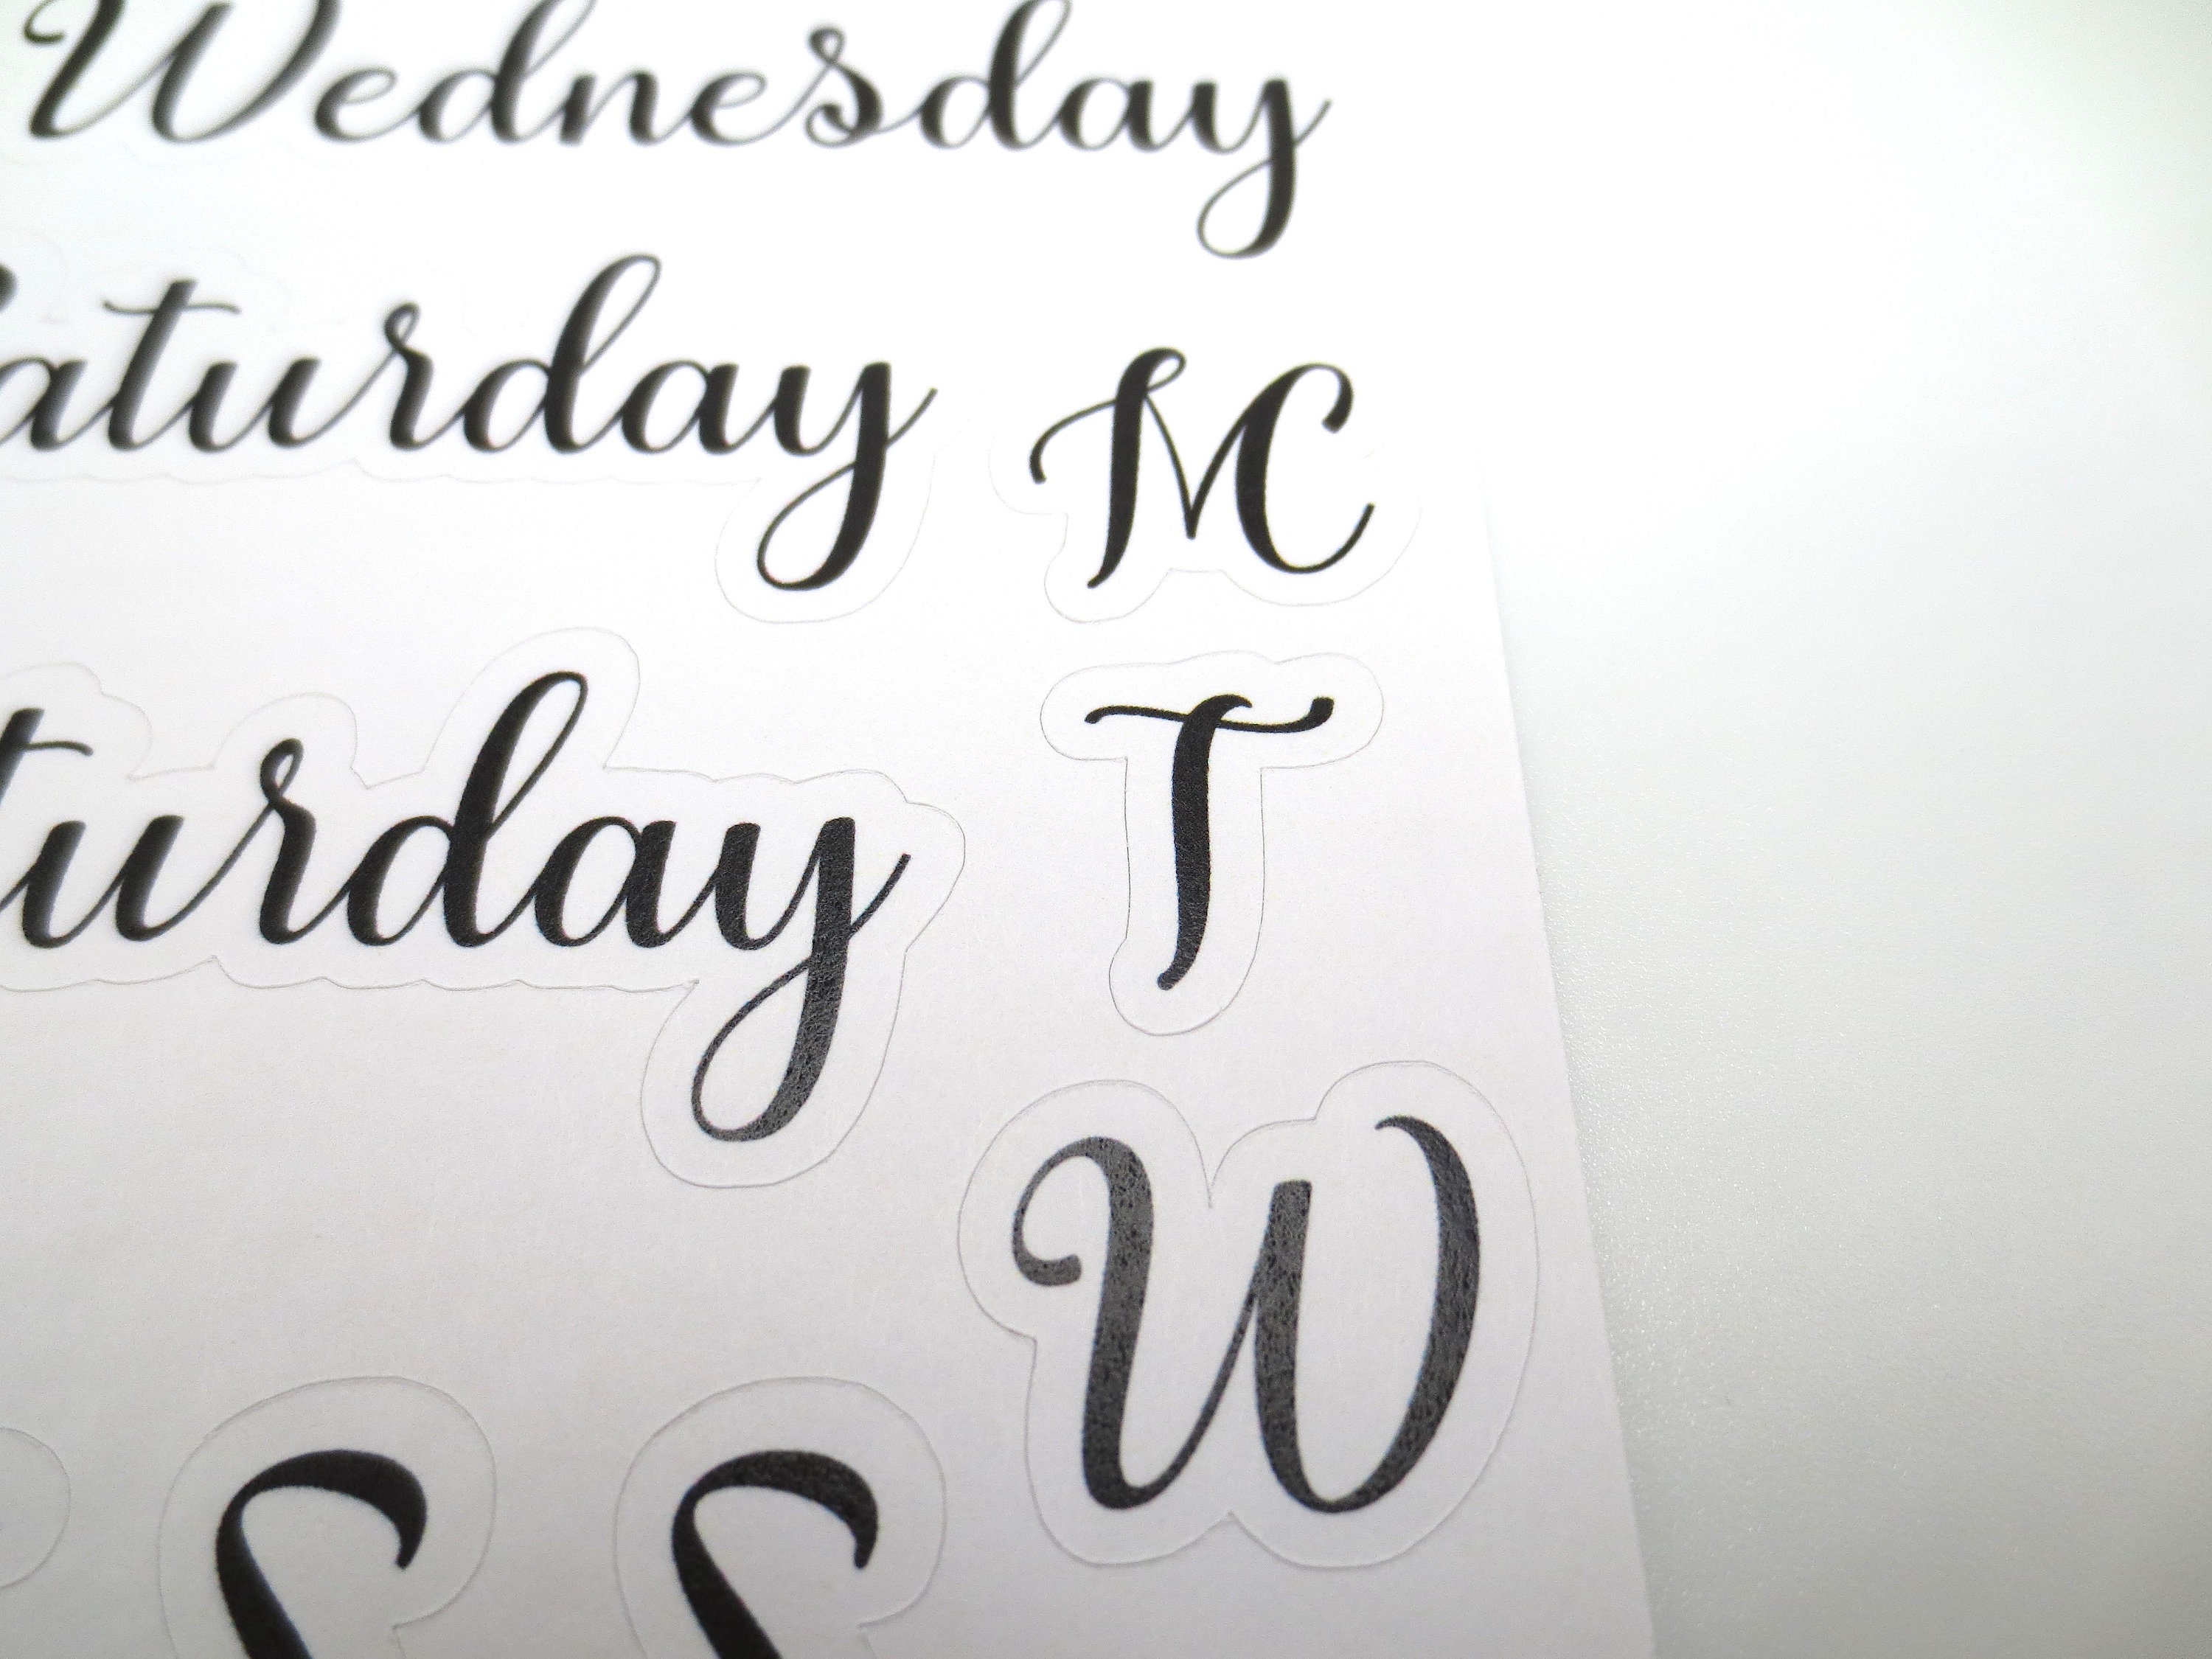 Wednesday
aturday
M
turday
T
W
S S